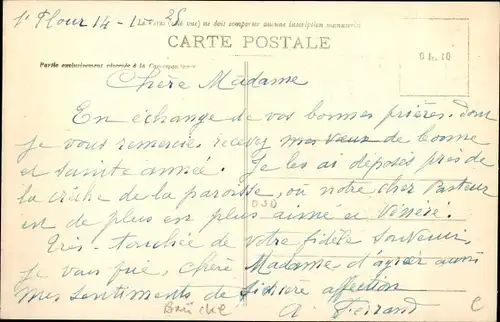 St Flour 14-1-25
Le Recto (côté vue) ne doit comporter aucune inscription manuscrite
CARTE POSTALE
Partie exclusivement réservée à la Correspondance
Chère Madame
En échange de vos bonnes prières, dont
je vous remercie, recevez mes vœux de bonne
et sainte année. Je les ai déposés près de
la crèche de la paroisse, où notre cher Pasteur
est de plus en plus aimé et vénéré.
Très-touchée de votre fidèle souvenir,
je vous prie, chère Madame, d'agréer aussi
mes sentiments de sincère affection
A. Ferrand